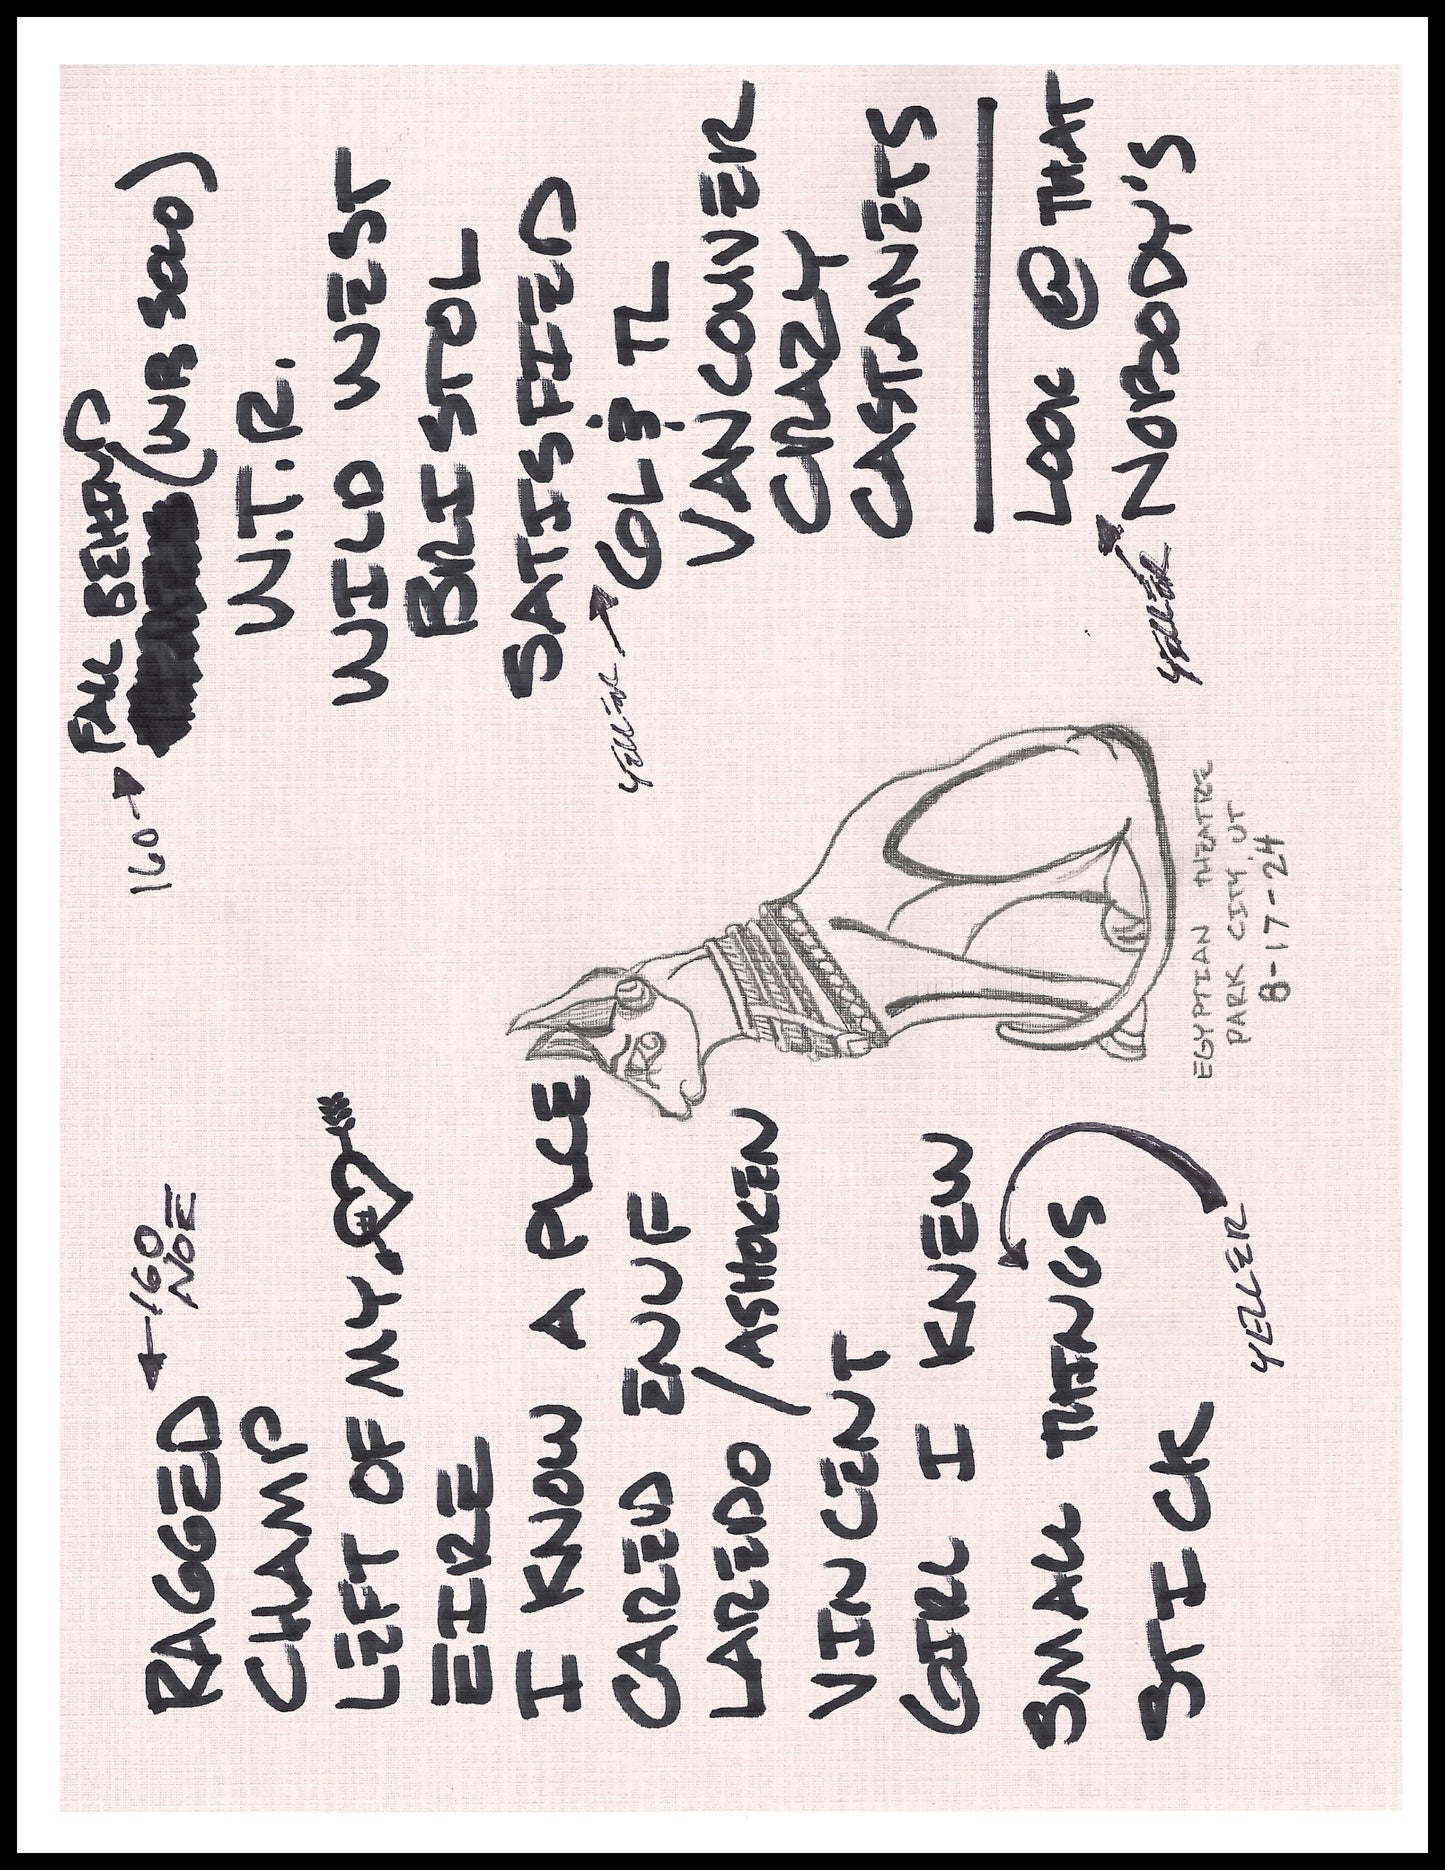 RAGGED
←160
NOE
CHAMP
LEFT OF MY
EIRE
I KNOW A PLCE
CARED ENUF
LAREDO / ASHOKEN
VINCENT
GIRL I KNEW
SMALL THINGS
STICK
YELLER
EGYPTIAN THEATRE
PARK CITY, UT
8-17-24
160→
FALL BEHIND
(WB SOLO)
W.T.R.
WILD WEST
BRISTOL
SATISFIED
YELLER →
GOL & TL
VANCOUVER
CRAZY
CASTANETS
LOOK @ THAT
YELLER →
NOBODY'S